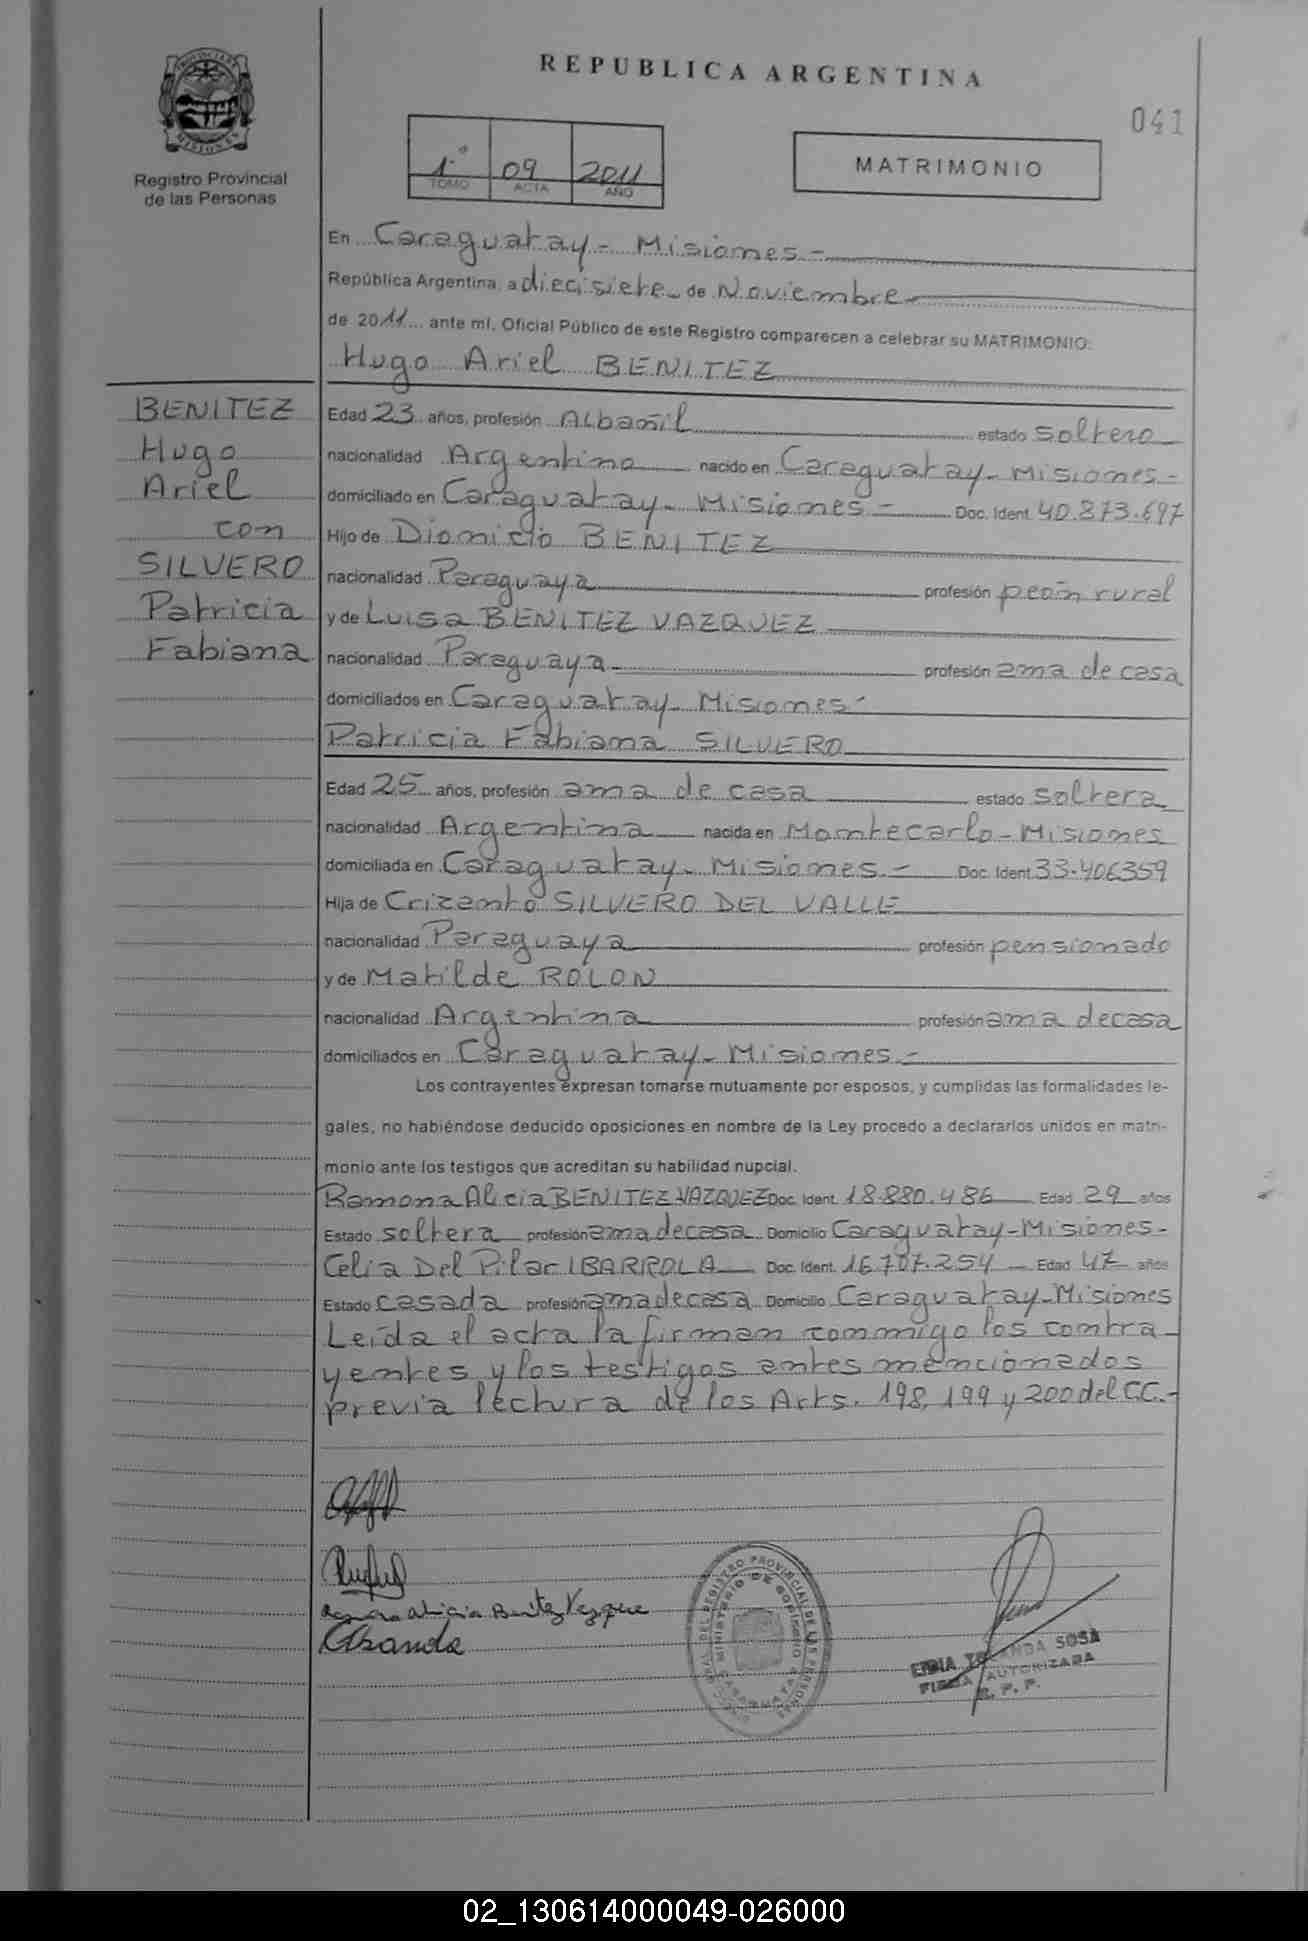 REPUBLICA ARGENTINA
041
PROVINCIA DE MISIONES
Registro Provincial
de las Personas
1.º 09 2011
TOMO ACTA AÑO
MATRIMONIO
En Caraguatay - Misiones -
República Argentina, a diecisiete de Noviembre
de 2011 ante mí, Oficial Público de este Registro comparecen a celebrar su MATRIMONIO:
Hugo Ariel BENITEZ
BENITEZ
Hugo
Ariel
con
SILVERO
Patricia
Fabiana
Edad 23 años, profesión Albañil estado soltero
nacionalidad Argentina nacido en Caraguatay - Misiones -
domiciliado en Caraguatay - Misiones - Doc. Ident. 40.873.697
Hijo de Dionicio BENITEZ
nacionalidad Paraguaya profesión peón rural
y de Luisa BENITEZ VAZQUEZ
nacionalidad Paraguaya profesión ama de casa
domiciliados en Caraguatay - Misiones -
Patricia Fabiana SILVERO
Edad 25 años, profesión ama de casa estado soltera
nacionalidad Argentina nacida en Montecarlo - Misiones
domiciliada en Caraguatay - Misiones - Doc. Ident. 33.406359
Hija de Crizanto SILVERO DEL VALLE
nacionalidad Paraguaya profesión pensionado
y de Matilde ROLON
nacionalidad Argentina profesión ama de casa
domiciliados en Caraguatay - Misiones -
Los contrayentes expresan tomarse mutuamente por esposos, y cumplidas las formalidades le-
gales, no habiéndose deducido oposiciones en nombre de la Ley procedo a declararlos unidos en matri-
monio ante los testigos que acreditan su habilidad nupcial.
Ramona Alicia BENITEZ VAZQUEZ Doc. Ident. 18.880.486 Edad 29 años
Estado soltera profesión ama de casa Domicilio Caraguatay - Misiones -
Celia Del Pilar IBARROLA Doc. Ident. 16.707.254 Edad 47 años
Estado casada profesión ama de casa Domicilio Caraguatay - Misiones
Leída el acta la firman conmigo los contra-
yentes y los testigos antes mencionados
previa lectura de los Arts. 198, 199 y 200 del CC.-
Ramona Alicia Benitez Vazquez
SOSA
FIRMA AUTORIZADA
R. P. P.
02_130614000049-026000